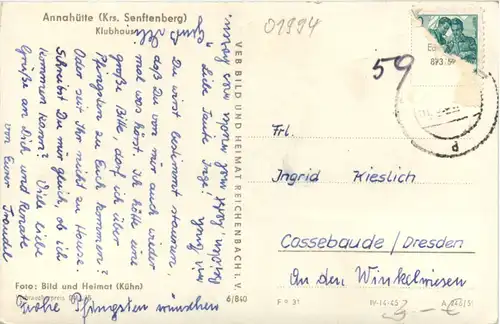 Annahütte (Krs. Senftenberg)
Klubhaus
01994
59
Liebe Tante Inge!
Du wirst bestimmt staunen,
daß Du von mir auch wieder
mal was hörst. Ich hätte eine
große Bitte, darf ich über
Pfingsten zu Euch kommen?
Oder seid Ihr nicht zu Hause.
Schreibst Du mir gleich, ob ich
kommen kann? Viele liebe
Grüße an Dich und Renate
von Eurer Traudel
Frohe Pfingsten wünschen
Foto: Bild und Heimat (Kühn)
VEB BILD UND HEIMAT REICHENBACH I. V.
6/840
Frl.
Ingrid Kieslich
Cossebaude/Dresden
An den Winkelwiesen
IV-14-45